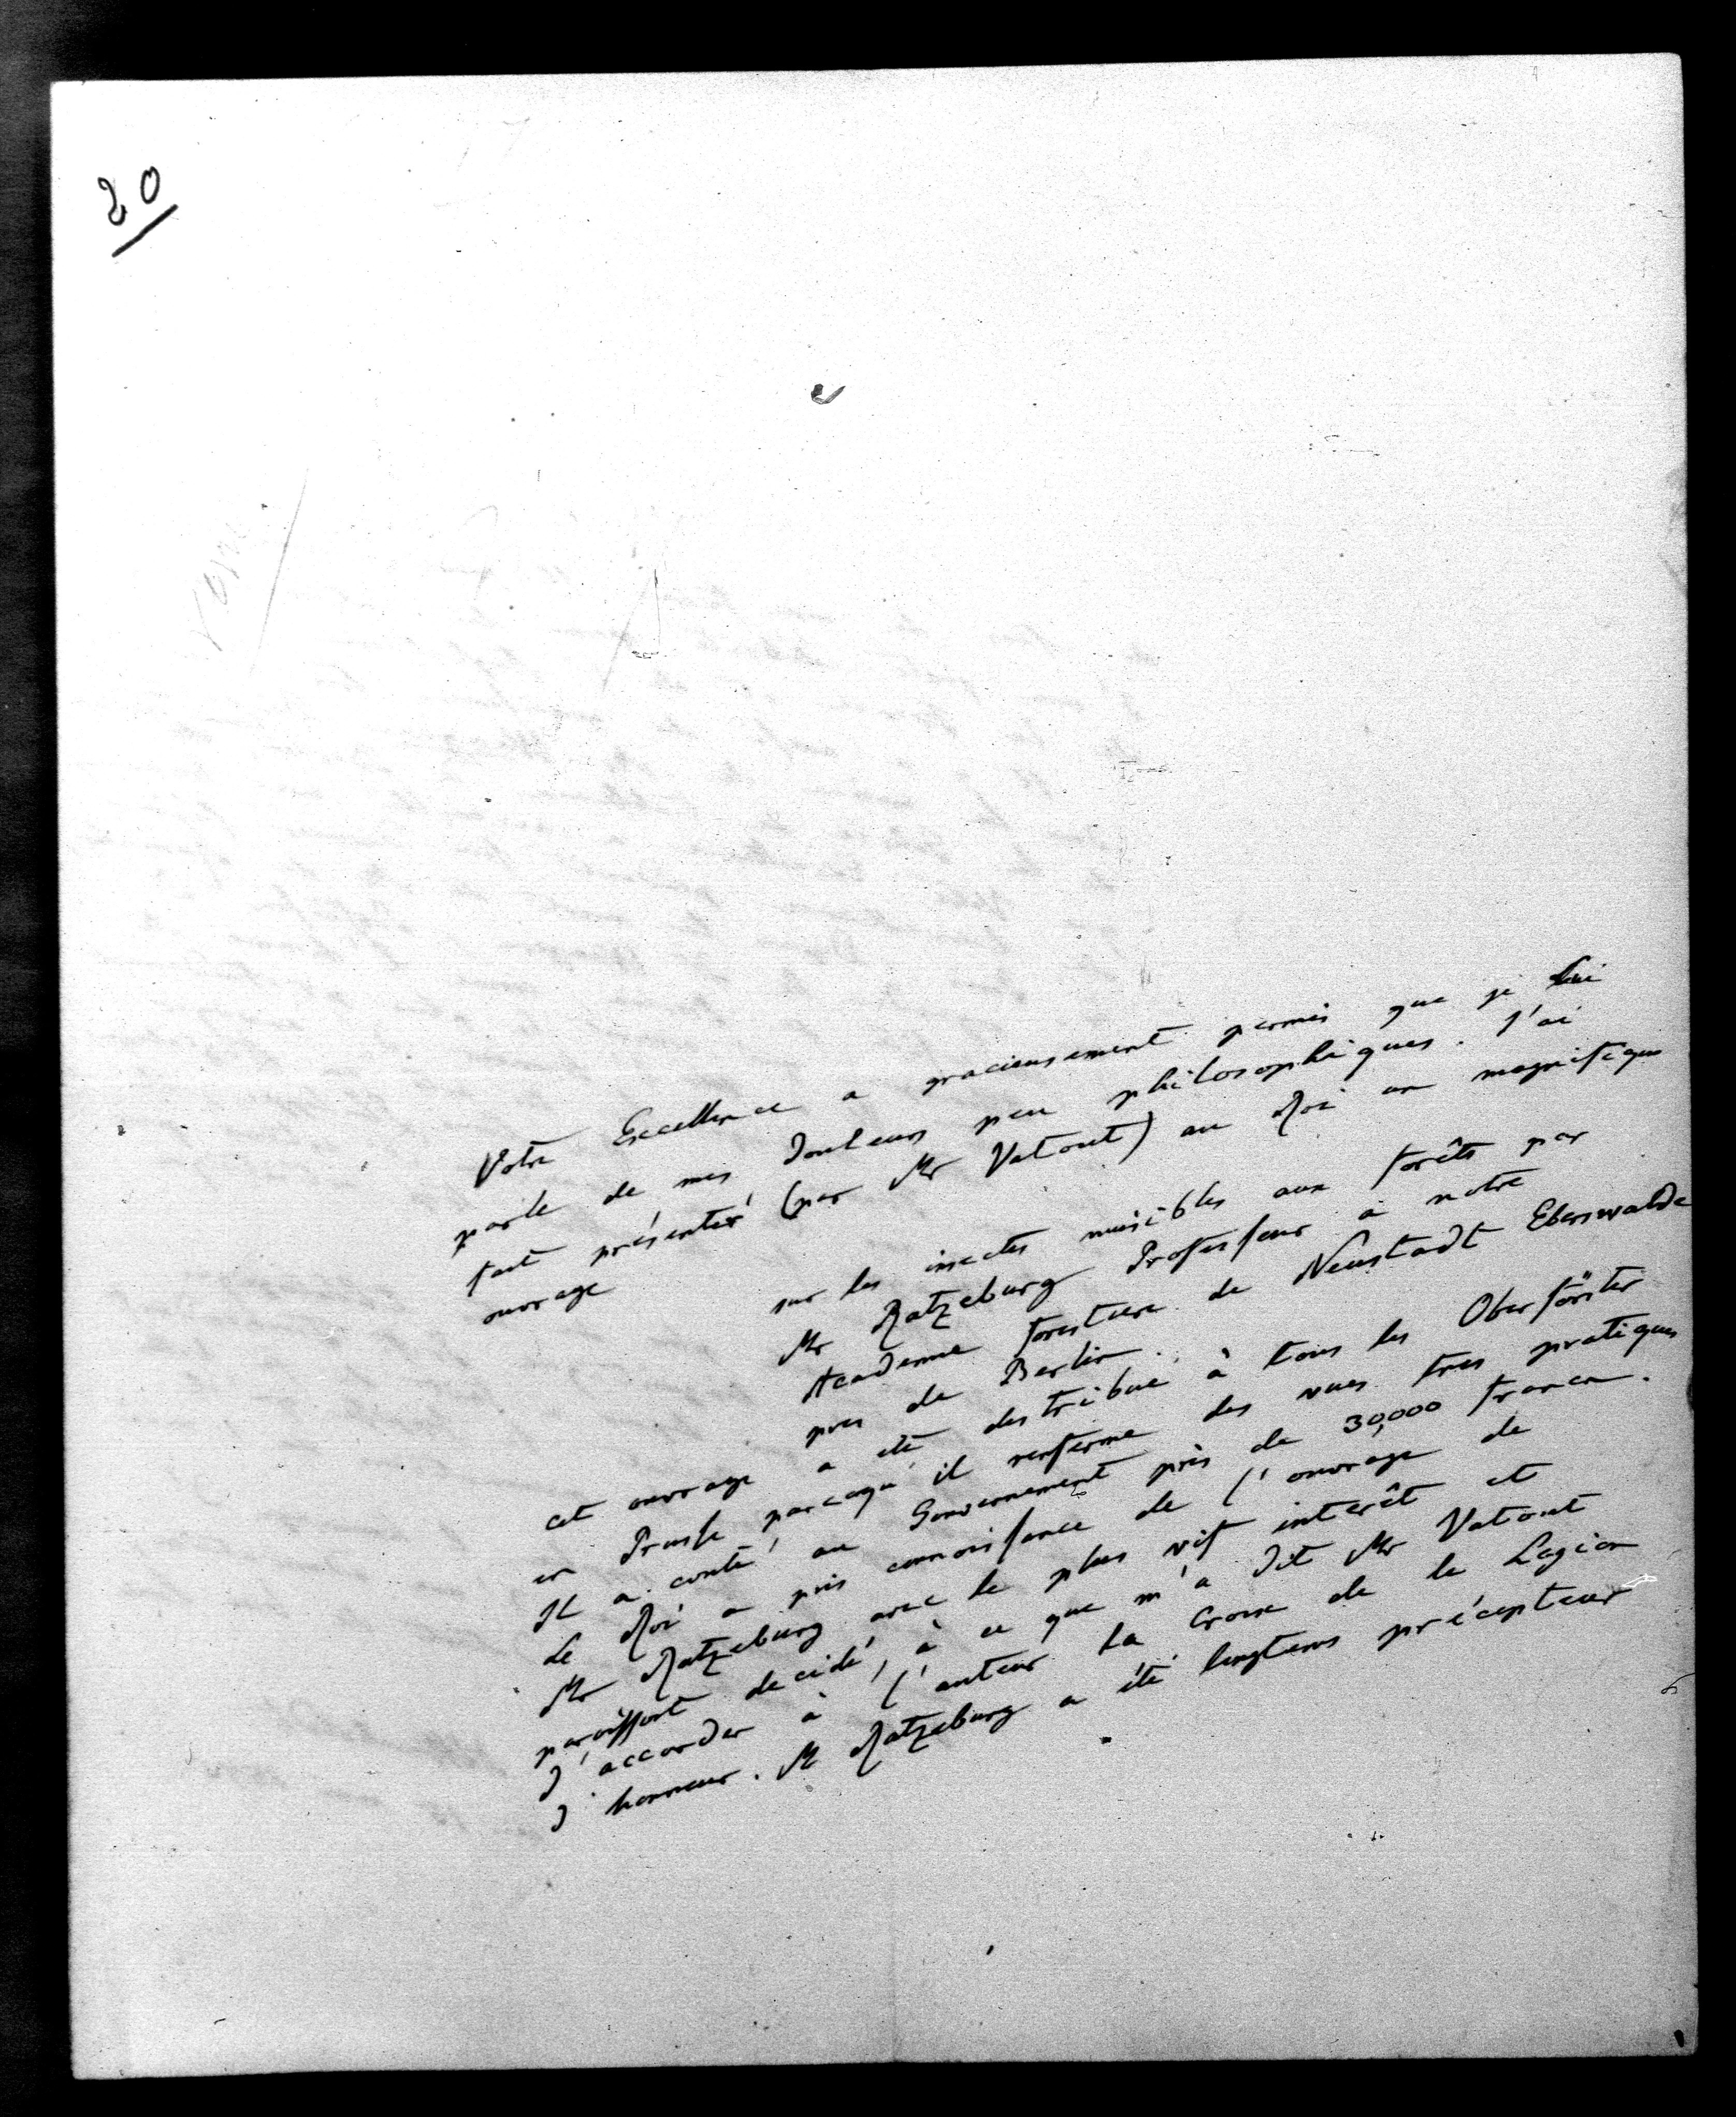 20
Votre Excellence a gracieusement permis que je lui
parle de mes douleurs peu philosophiques. J'ai
fait présenter (par Mr Vatout) au Roi un magnifique
ouvrage
sur les insectes nuisibles aux forêts par
Mr Ratzeburg Professeur à notre
Academie forestiere de Neustadt Eberswalde
pres de Berlin.
cet ouvrage a été distribué à tous les Oberförster
en Prusse parcequ'il renferme des vues tres pratiques
Il a couté au Gouvernement près de 30,000 francs.
Le Roi a pris connoissance de l'ouvrage de
Mr Ratzeburg avec le plus vif interêt et
paroissoit decidé, à ce que m'a dit Mr Vatout
d'accorder à l'auteur la Croix de la Legion
d'honneur. M Ratzeburg a été longtems précepteur